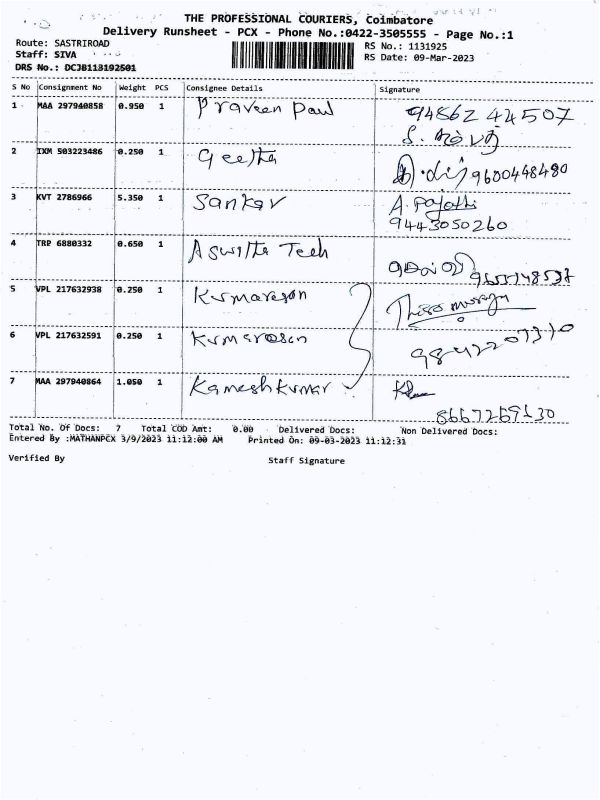 THE PROFESSIONAL COURIERS, Coimbatore
Delivery Runsheet - PCX - Phone No.:0422-3505555 - Page No.:1
Route: SASTRIROAD
RS No.: 1131925
Staff: SIVA
RS Date: 09-Mar-2023
DRS No.: DCJB113192501
S No Consignment No Weight PCS Consignee Details Signature
1 MAA 297940858 0.950 1 Praveen Paul 94862 44507
2 IXM 503223486 0.250 1 Geetha 9600448480
3 KVT 2786966 5.350 1 Sankar A. Pajothi
9443050260
4 TRP 6880332 0.650 1 Aswitha Tech
5 VPL 217632938 0.250 1 Kumaresan
6 VPL 217632591 0.250 1 Kumaresan 9842207310
7 MAA 297940864 1.050 1 Kameshkumar
8667269130
Total No. Of Docs: 7 Total COD Amt: 0.00 Delivered Docs: Non Delivered Docs:
Entered By :MATHANPCX 3/9/2023 11:12:00 AM Printed On: 09-03-2023 11:12:31
Verified By Staff Signature